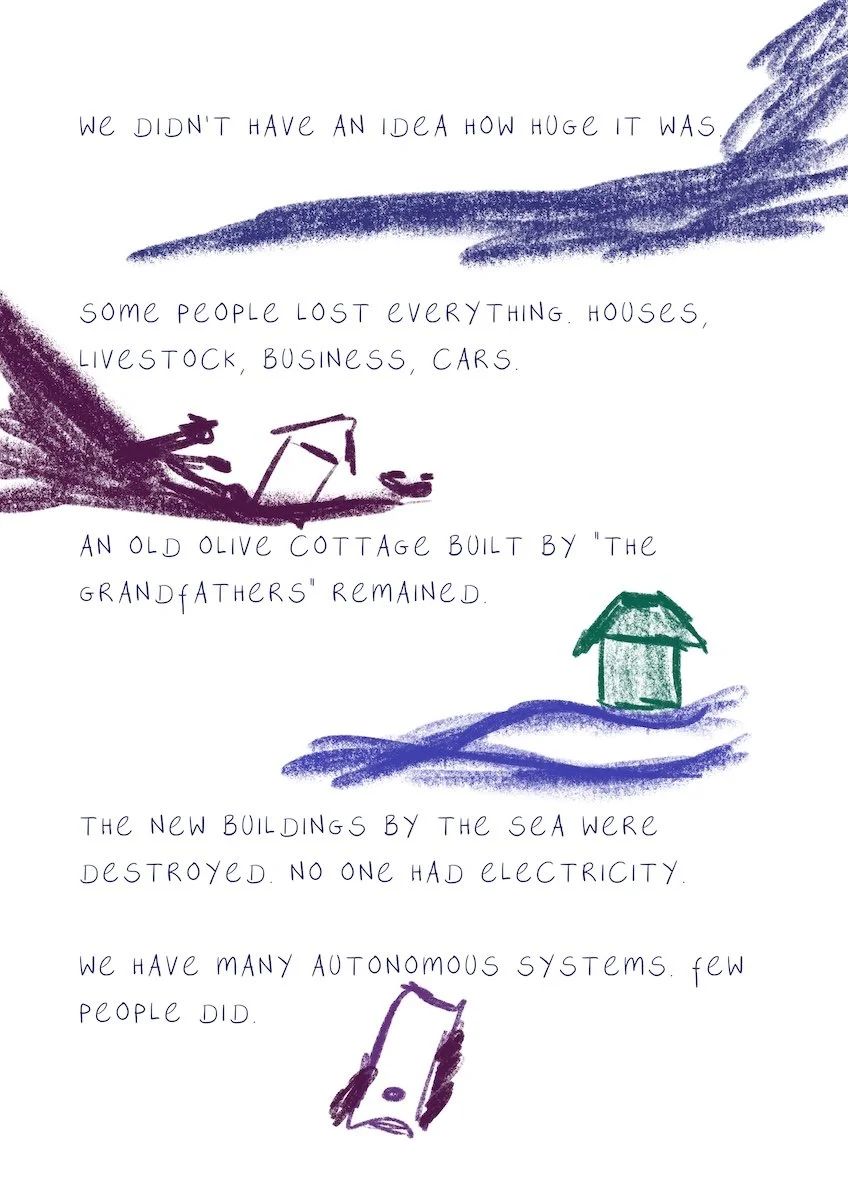 WE DIDN'T HAVE AN IDEA HOW HUGE IT WAS.
SOME PEOPLE LOST EVERYTHING. HOUSES,
LIVESTOCK, BUSINESS, CARS.
AN OLD OLIVE COTTAGE BUILT BY "THE
GRANDFATHERS" REMAINED.
THE NEW BUILDINGS BY THE SEA WERE
DESTROYED. NO ONE HAD ELECTRICITY.
WE HAVE MANY AUTONOMOUS SYSTEMS. FEW
PEOPLE DID.